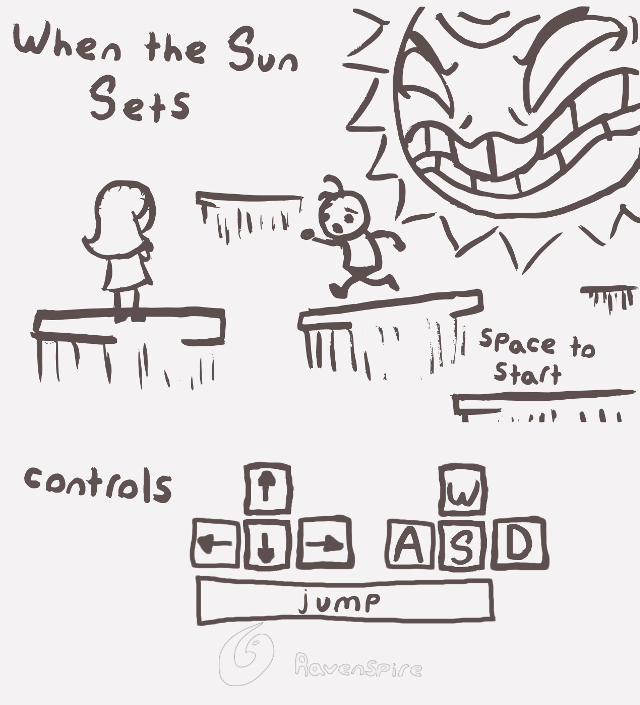 When the Sun
Sets
Space to
Start
controls
W
A S D
jump
Ravenspire